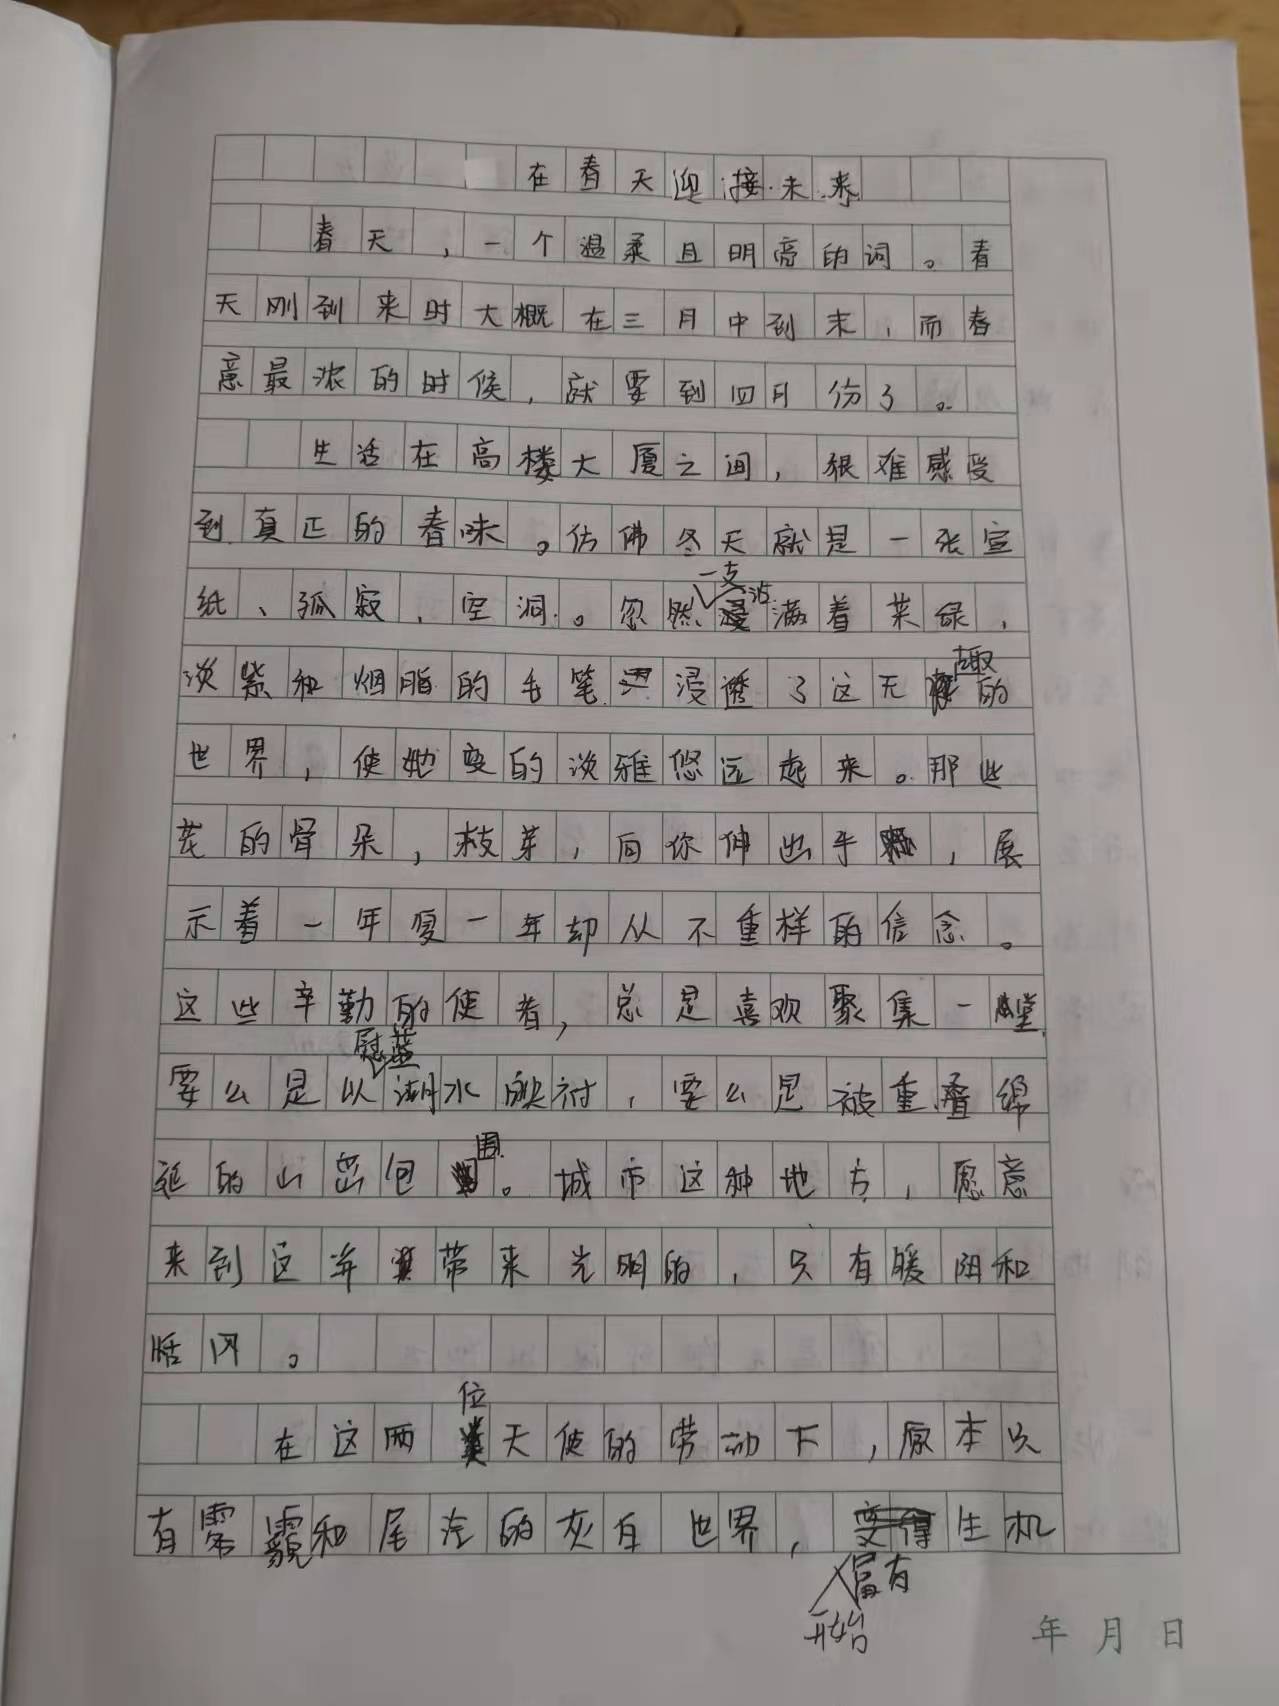 在春天迎接未来
春天，一个温柔且明亮的词。春
天刚到来时大概在三月中到末，而春
意最浓的时候，就要到四月份了。
生活在高楼大厦之间，很难感受
到真正的春味。仿佛冬天就是一张宣
纸、孤寂，空洞。忽然一支沾满着菜绿，
淡紫和烟脂的毛笔浸透了这无趣的
世界，使她变的淡雅悠远起来。那些
花的骨朵，枝芽，向你伸出手，展
示着一年复一年却从不重样的信念。
这些辛勤的使者，总是喜欢聚集一堂
要么是以慰蓝湖水映衬，要么是被重叠绵
延的山峦包围。城市这种地方，愿意
来到这并带来光明的，只有暖阳和
恬风。
在这两位天使的劳动下，原本只
有雾霾和尾汽的灰白世界，开始富有生机
年 月 日